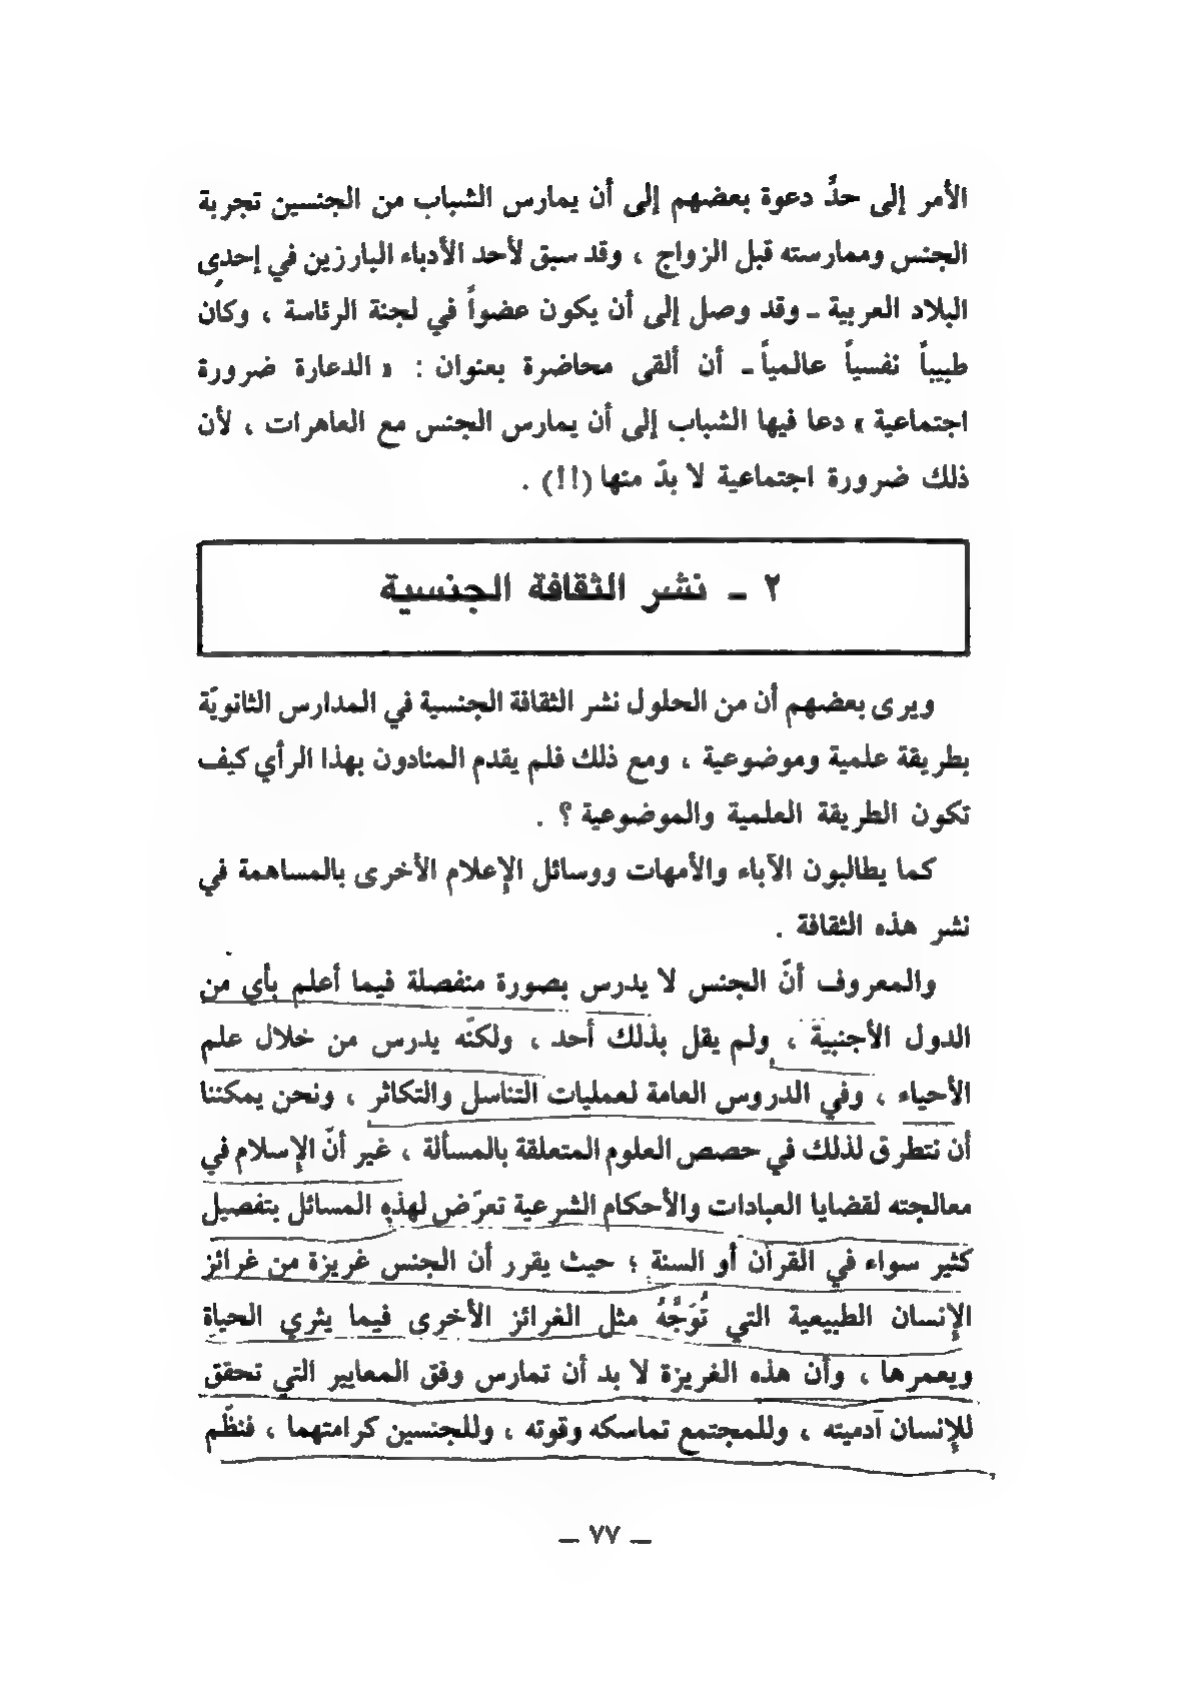 الأمر إلى حدَّ دعوة بعضهم إلى أن يمارس الشباب من الجنسين تجربة
الجنس وممارسته قبل الزواج ، وقد سبق لأحد الأدباء البارزين في إحدى
البلاد العربية ـ وقد وصل إلى أن يكون عضواً في لجنة الرئاسة ، وكان
طبيباً نفسياً عالمياً ـ أن ألقى محاضرة بعنوان : « الدعارة ضرورة
اجتماعية » دعا فيها الشباب إلى أن يمارس الجنس مع العاهرات ، لأن
ذلك ضرورة اجتماعية لا بدّ منها (!!) .
٢ ـ نشر الثقافة الجنسية
ويرى بعضهم أن من الحلول نشر الثقافة الجنسية في المدارس الثانويّة
بطريقة علمية وموضوعية ، ومع ذلك فلم يقدم المنادون بهذا الرأي كيف
تكون الطريقة العلمية والموضوعية ؟ .
كما يطالبون الآباء والأمهات ووسائل الإعلام الأخرى بالمساهمة في
نشر هذه الثقافة .
والمعروف أنّ الجنس لا يدرس بصورة منفصلة فيما أعلم بأي من
الدول الأجنبية ، ولم يقل بذلك أحد ، ولكنّه يدرس من خلال علم
الأحياء ، وفي الدروس العامة لعمليات التناسل والتكاثر ، ونحن يمكننا
أن نتطرق لذلك في حصص العلوم المتعلقة بالمسألة ، غير أنّ الإسلام في
معالجته لقضايا العبادات والأحكام الشرعية تعرّض لهذه المسائل بتفصيل
كثير سواء في القرآن أو السنة ؛ حيث يقرر أن الجنس غريزة من غرائز
الإنسان الطبيعية التي تُوَجَّهُ مثل الغرائز الأخرى فيما يثري الحياة
ويعمرها ، وأن هذه الغريزة لا بد أن تمارس وفق المعايير التي تحقق
للإنسان آدميته ، وللمجتمع تماسكه وقوته ، وللجنسين كرامتهما ، فنظّم
ـ ٧٧ ـ